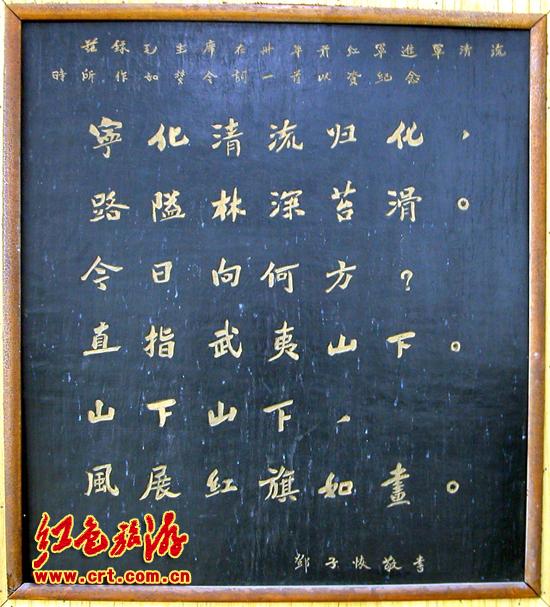 茲録毛主席在卅年前红軍進軍清流
時所作如梦令词一首以资紀念
寧化清流归化，
路隘林深苔滑。
今日向何方？
直指武夷山下。
山下山下，
風展红旗如畫。
鄧子恢敬書
红色旅游
www.crt.com.cn